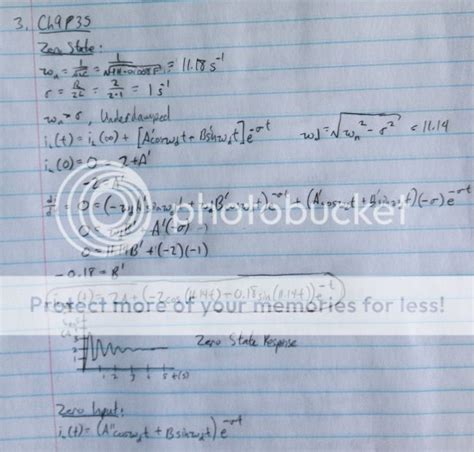 3. Ch9P35
Zero State:
ωn = 1/√LC = 1/√ = 11.18 s⁻¹
σ = R/2L = 2/2·1 = 1 s⁻¹
ωn > σ, Underdamped
iL(t) = iL(∞) + [A'cosωdt + B'sinωdt]e^-σt ωd = √ωn² - σ² = 11.14
iL(0) = 0 = 2 + A'
-2 = A'
= 0 = (-ωdA'sinωdt + ωdB'cosωdt)e^-σt + (A'cosωdt + B'sinωdt)(-σ)e^-σt
0 = ωdB' + A'(-σ)
0 = 11.14B' + (-2)(-1)
-0.18 = B'
iL(t) = 2A + (-2cos(11.14t) - 0.18sin(11.14t))e^-t
photobucket
Protect more of your memories for less!
Zero State Response
1 2 3 4 5 t(s)
Zero Input:
iL(t) = (A"cosωdt + B sinωdt)e^-σt